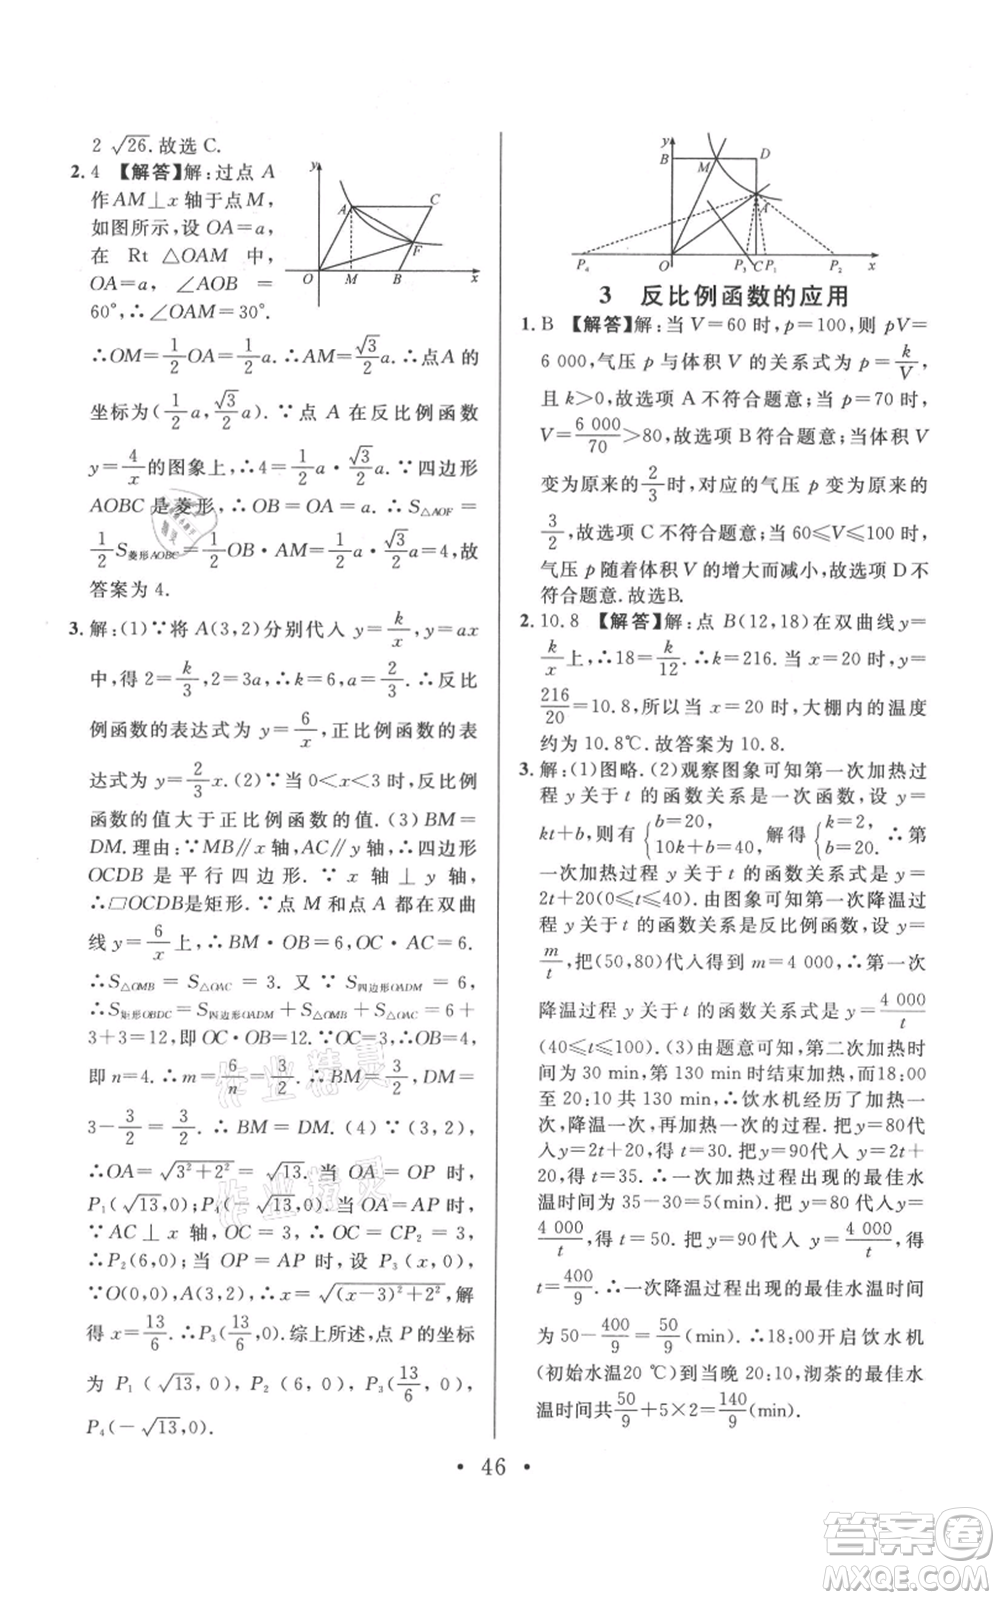 2 √26. 故选 C.
2. 4 【解答】解：过点 A
作 AM⊥x 轴于点 M，
如图所示，设 OA=a，
在 Rt △OAM 中，
OA=a，∠AOB=
60°，∴∠OAM=30°.
∴OM=1/2OA=1/2a. ∴AM=√3/2a. ∴点A 的
坐标为(1/2a, √3/2a). ∵点 A 在反比例函数
y=4/x的图象上，∴4=1/2a·√3/2a. ∵四边形
AOBC 是菱形，∴OB=OA=a，∴S△AOF=
1/2S菱形AOBC=1/2OB·AM=1/2a·√3/2a=4，故
答案为 4.
3. 解：(1)∵将 A(3,2)分别代入 y=k/x，y=ax
中，得 2=k/3，2=3a，∴k=6，a=2/3. ∴反比
例函数的表达式为 y=6/x，正比例函数的表
达式为 y=2/3x. (2)∵当 0<x<3 时，反比例
函数的值大于正比例函数的值. (3) BM=
DM. 理由：∵MB∥x 轴，AC∥y 轴，∴四边形
OCDB 是平行四边形. ∵x 轴 ⊥ y 轴，
∴□OCDB是矩形. ∵点 M 和点 A 都在双曲
线 y=6/x上，∴BM·OB=6，OC·AC=6.
∴S△OMB=S△OAC=3. 又∵S四边形OADM=6，
∴S矩形OBDC=S四边形OADM+S△OMB+S△OAC=6+
3+3=12，即 OC·OB=12. ∵OC=3，∴OB=4，
即 n=4. ∴m=6/n=3/2. ∴BM=3/2，DM=
3-3/2=3/2. ∴BM=DM. (4)∵A(3,2)，
∴OA=√3²+2²=√13. 当 OA=OP 时，
P₁(√13,0)；P₄(-√13,0). 当 OA=AP 时，
∵AC⊥x 轴，OC=3，∴OC=CP₂=3.
∴P₂(6,0)；当 OP=AP 时，设 P₃(x,0)，
∵O(0,0)，A(3,2)，∴x=√(x-3)²+2²，解
得 x=13/6. ∴P₃(13/6,0). 综上所述，点 P 的坐标
为 P₁(√13,0)，P₂(6,0)，P₃(13/6,0)，
P₄(-√13,0).
y
A
C
F
O
M
B
x
y
B
M
D
A
P₄
O
P₃
C
P₁
P₂
x
3 反比例函数的应用
1. B 【解答】解：当 V=60 时，p=100，则 pV=
6 000，气压 p 与体积 V 的关系式为 p=k/V，
且 k>0，故选项 A 不符合题意；当 p=70 时，
V=6 000/70>80，故选项 B 符合题意；当体积 V
变为原来的2/3时，对应的气压 p 变为原来的
3/2，故选项 C 不符合题意；当 60≤V≤100 时，
气压 p 随着体积 V 的增大而减小，故选项 D 不
符合题意. 故选B.
2. 10.8 【解答】解：点 B(12,18)在双曲线 y=
k/x上，∴18=k/12. ∴k=216. 当 x=20 时，y=
216/20=10.8，所以当 x=20 时，大棚内的温度
约为 10.8℃. 故答案为 10.8.
3. 解：(1)图略. (2)观察图象可知第一次加热过
程 y 关于 t 的函数关系是一次函数，设 y=
kt+b，则有{b=20, 10k+b=40, 解得{k=2, b=20. ∴第
一次加热过程 y 关于 t 的函数关系式是 y=
2t+20(0≤t≤40)；由图象可知第一次降温过
程 y 关于 t 的函数关系是反比例函数，设 y=
m/t，把(50,80)代入得到 m=4 000，∴第一次
降温过程 y 关于 t 的函数关系式是 y=4 000/t
(40≤t≤100). (3)由题意可知，第二次加热
时间为 30 min，第 130 min时结束加热，而18:00
至 20:10 共 130 min，∴饮水机经历了加热
—降温—再加热一次的过程. 把 y=80代入
y=2t+20，得 t=30. 把 y=90代入 y=2t+
20，得 t=35. ∴一次加热过程出现的最佳水
温时间为 35-30=5(min). 把 y=80 代入y=
4 000/t，得 t=50. 把 y=90代入 y=4 000/t，得
t=400/9. ∴一次降温过程出现的最佳水温时间
为 50-400/9=50/9(min). ∴18:00开启饮水机
(初始水温20 ℃)到当晚 20:10，沏茶的最佳水
温时间共50/9+5×2=140/9(min).
· 46 ·
作业精灵
作业精灵
答案卷
MXQE.COM